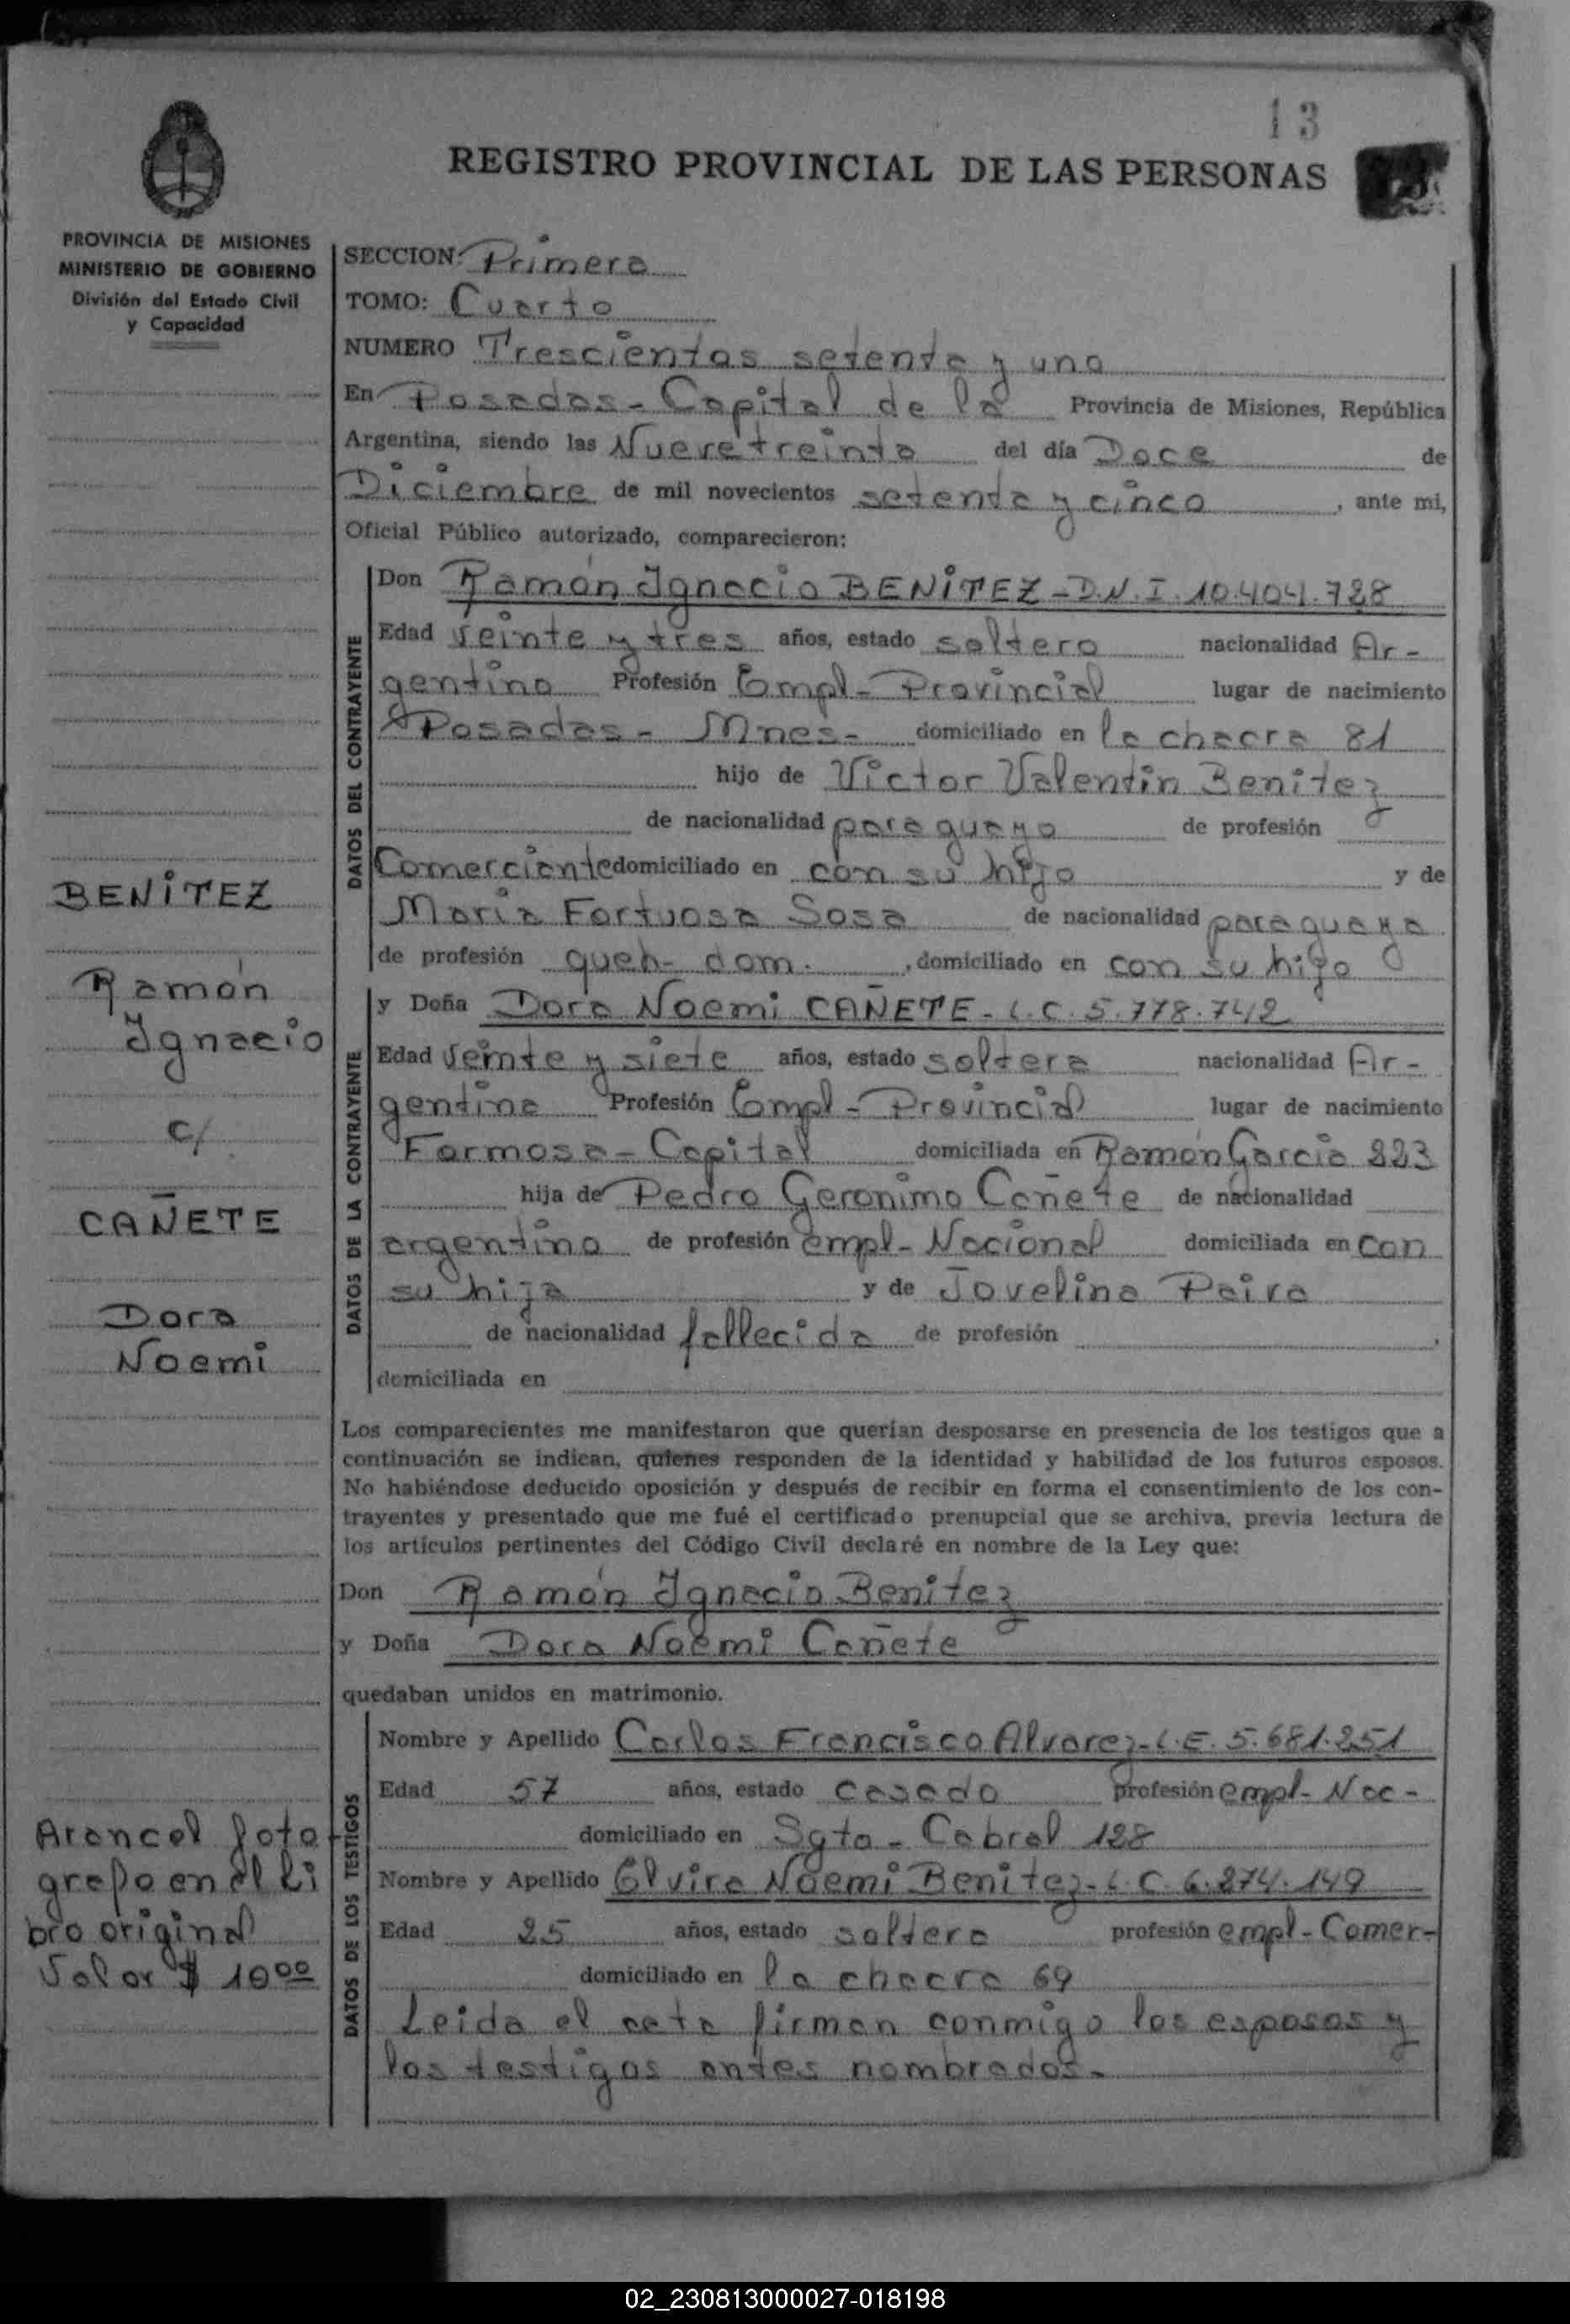 13
REGISTRO PROVINCIAL DE LAS PERSONAS
PROVINCIA DE MISIONES
MINISTERIO DE GOBIERNO
División del Estado Civil
y Capacidad
SECCION: Primera
TOMO: Cuarto
NUMERO Trescientos setenta y uno
En Posadas - Capital de la Provincia de Misiones, República
Argentina, siendo las Nueve treinta del día Doce de
Diciembre de mil novecientos setenta y cinco, ante mi,
Oficial Público autorizado, comparecieron:
DATOS DEL CONTRAYENTE
Don Ramón Ignacio BENITEZ - D.N.I. 10.404.728
Edad veinte y tres años, estado soltero nacionalidad Ar-
gentino Profesión Empl - Provincial lugar de nacimiento
Posadas - Mnes - domiciliado en la chacra 81
hijo de Victor Valentin Benitez
de nacionalidad paraguayo de profesión
Comerciante domiciliado en con su hijo y de
Maria Fortuosa Sosa de nacionalidad paraguaya
de profesión queh - dom. , domiciliado en con su hijo
DATOS DE LA CONTRAYENTE
y Doña Dora Noemi CAÑETE - L.C. 5.778.742
Edad veinte y siete años, estado soltera nacionalidad Ar -
gentina Profesión Empl - Provincial lugar de nacimiento
Formosa - Capital domiciliada en Ramón Garcia 223
hija de Pedro Geronimo Cañete de nacionalidad
argentino de profesión empl - Nacional domiciliada en con
su hija y de Jovelina Paiva
de nacionalidad fallecida de profesión ,
domiciliada en
Los comparecientes me manifestaron que querían desposarse en presencia de los testigos que a
continuación se indican, quienes responden de la identidad y habilidad de los futuros esposos.
No habiéndose deducido oposición y después de recibir en forma el consentimiento de los con-
trayentes y presentado que me fué el certificado prenupcial que se archiva, previa lectura de
los artículos pertinentes del Código Civil declaré en nombre de la Ley que:
Don Ramón Ignacio Benitez
y Doña Dora Noemi Cañete
quedaban unidos en matrimonio.
DATOS DE LOS TESTIGOS
Nombre y Apellido Carlos Francisco Alvarez - L.E. 5.681.251
Edad 57 años, estado casado profesión empl - Nac -
domiciliado en Sgto - Cabral 128
Nombre y Apellido Elvira Noemi Benitez - L.C. 6.274.149
Edad 25 años, estado soltera profesión empl - Comer -
domiciliado en la chacra 69
Leida el acta firman conmigo los esposos y
los testigos antes nombrados -
BENITEZ
Ramón
Ignacio
c/
CAÑETE
Dora
Noemi
Arancel foto
grafo en el li
bro original
Valor $ 10 00
02_230813000027-018198